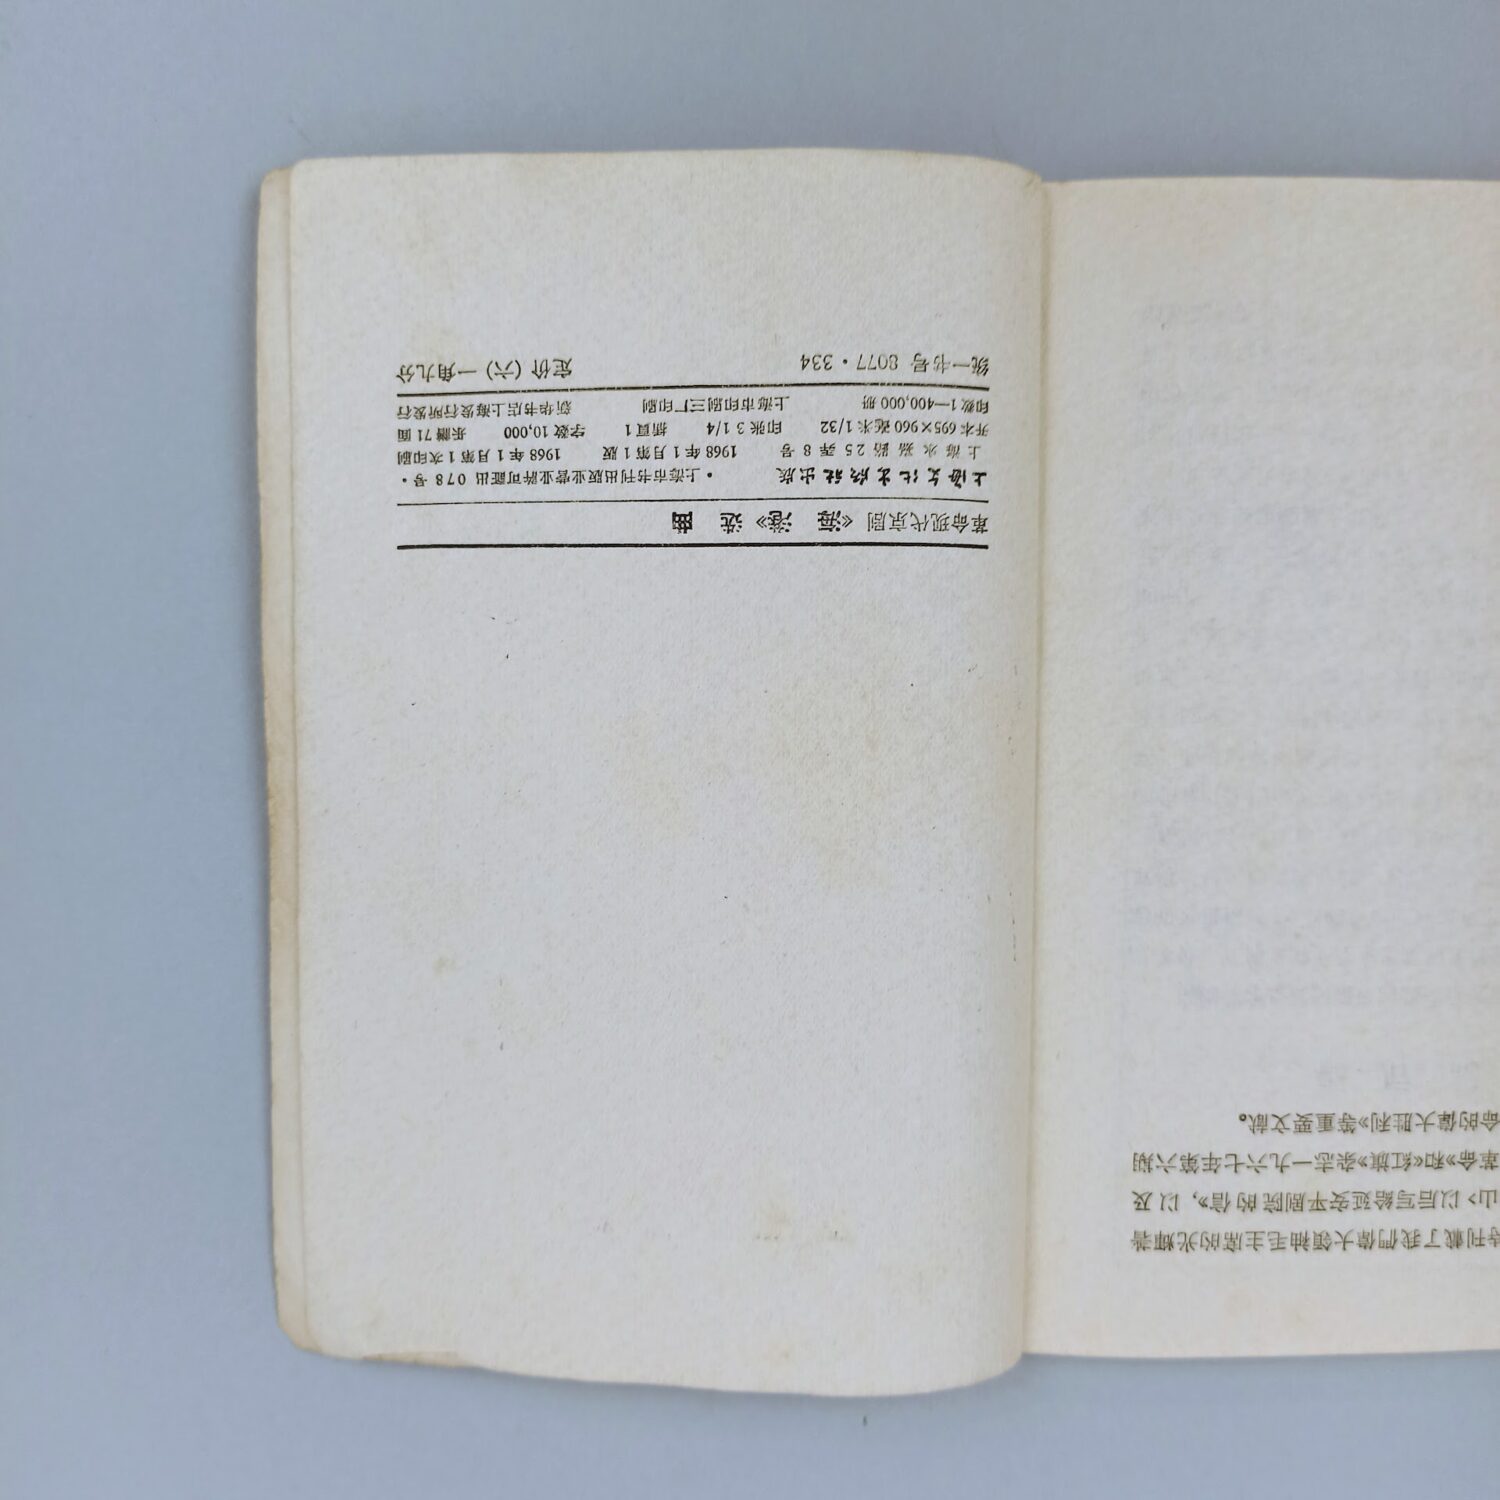 革命现代京剧《海港》选曲
上海文化出版社出版 ·上海市书刊出版业营业許可証出 078 号·
上海永嘉路25弄8号 1968年1月第1版 1968年1月第1次印刷
开本 695×960 毫米 1/32 印张 3 1/4 插頁 1 字数 10,000 乐譜 71 面
印数 1—400,000 册 上海市印刷三厂印刷 新华书店上海发行所发行
统一书号 8077·334 定价（六）一角九分
刊載了我們偉大領袖毛主席的光輝著
山〉以后写給延安平剧院的信》，以及
革命》和《紅旗》杂志一九六七年第六期
命的偉大胜利》等重要文献。